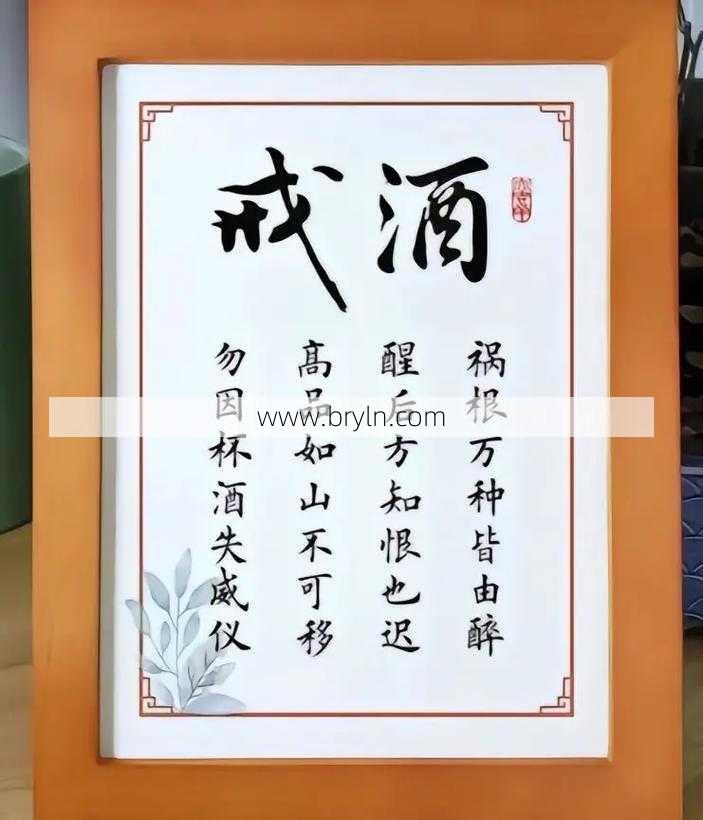 酒戒
祸根万种皆由醉
醒后方知恨也迟
高品如山不可移
勿因杯酒失威仪
www.bryln.com